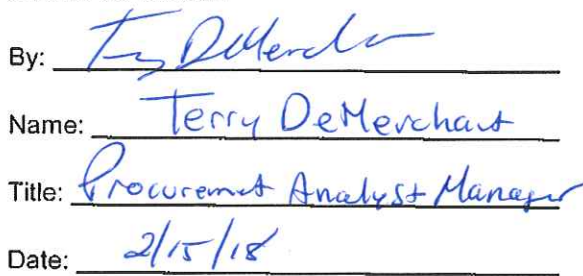 By: Terry DeMerchant
Name: Terry DeMerchant
Title: Procuremet Analyst Manager
Date: 2/15/18